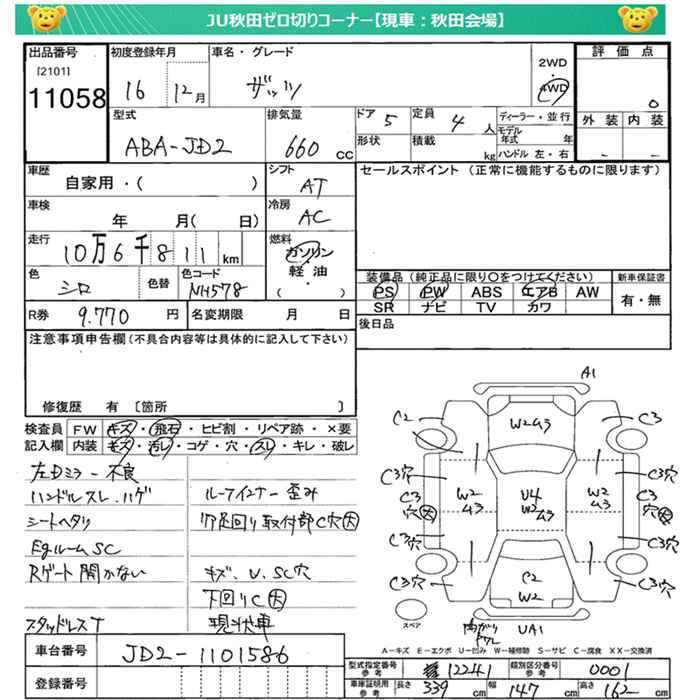 JU秋田ゼロ切りコーナー【現車：秋田会場】
出品番号
[2101]
11058
初度登録年月
16 12月
車名・グレード
ザッツ
2WD
4WD
評価点
0
外装 内装
- -
型式
ABA-JD2
排気量
660 cc
ドア 5
定員 4 人
形状
積載 kg
ディーラー・並行
モデル年式 年
ハンドル 左・右
車歴
自家用・( )
シフト
AT
車検
年 月( 日)
冷房
AC
走行
10万6千811km
燃料
ガソリン
軽油
・( )
色
シロ
色替
色コード
NH578
R券 9.770 円
名変期限 月 日
セールスポイント（正常に機能するものに限ります）
装備品（純正品に限り○をつけてください）
PS PW ABS エアB AW
SR ナビ TV カワ
新車保証書
有・無
後日品
注意事項申告欄（不具合内容等は具体的に記入して下さい）
修復歴 有 〔箇所 〕
検査員
記入欄
FW キズ・飛石・ヒビ割・リペア跡・×要
内装 キズ・汚レ・コゲ・穴・スレ・キレ・破レ
左Dミラー不良
ハンドルスレ.ハゲ
シートヘタリ
EgルームSC
Rゲート開かない
スタッドレスT
ルーフインナー歪み
リア足回り取付部C穴大
キズ、U、SC穴
下回りC大
現状車
A1
C2
W2 A3
C3
C3穴
C3穴
C3
穴大
W2
A3
U4
W2
A3
W2
A3
C3
穴大
C3穴
C3穴
C2
W2
C3穴
C3穴
スペア
UA1
A－キズ E－エクボ U－凹み W－補修跡 S－サビ C－腐食 XX－交換済
車台番号
JD2-1101586
登録番号
型式指定番号
参考
12241
類別区分番号
参考
0001
車庫証明用
参考
長さ 339 cm
幅 147 cm
高さ 162 cm